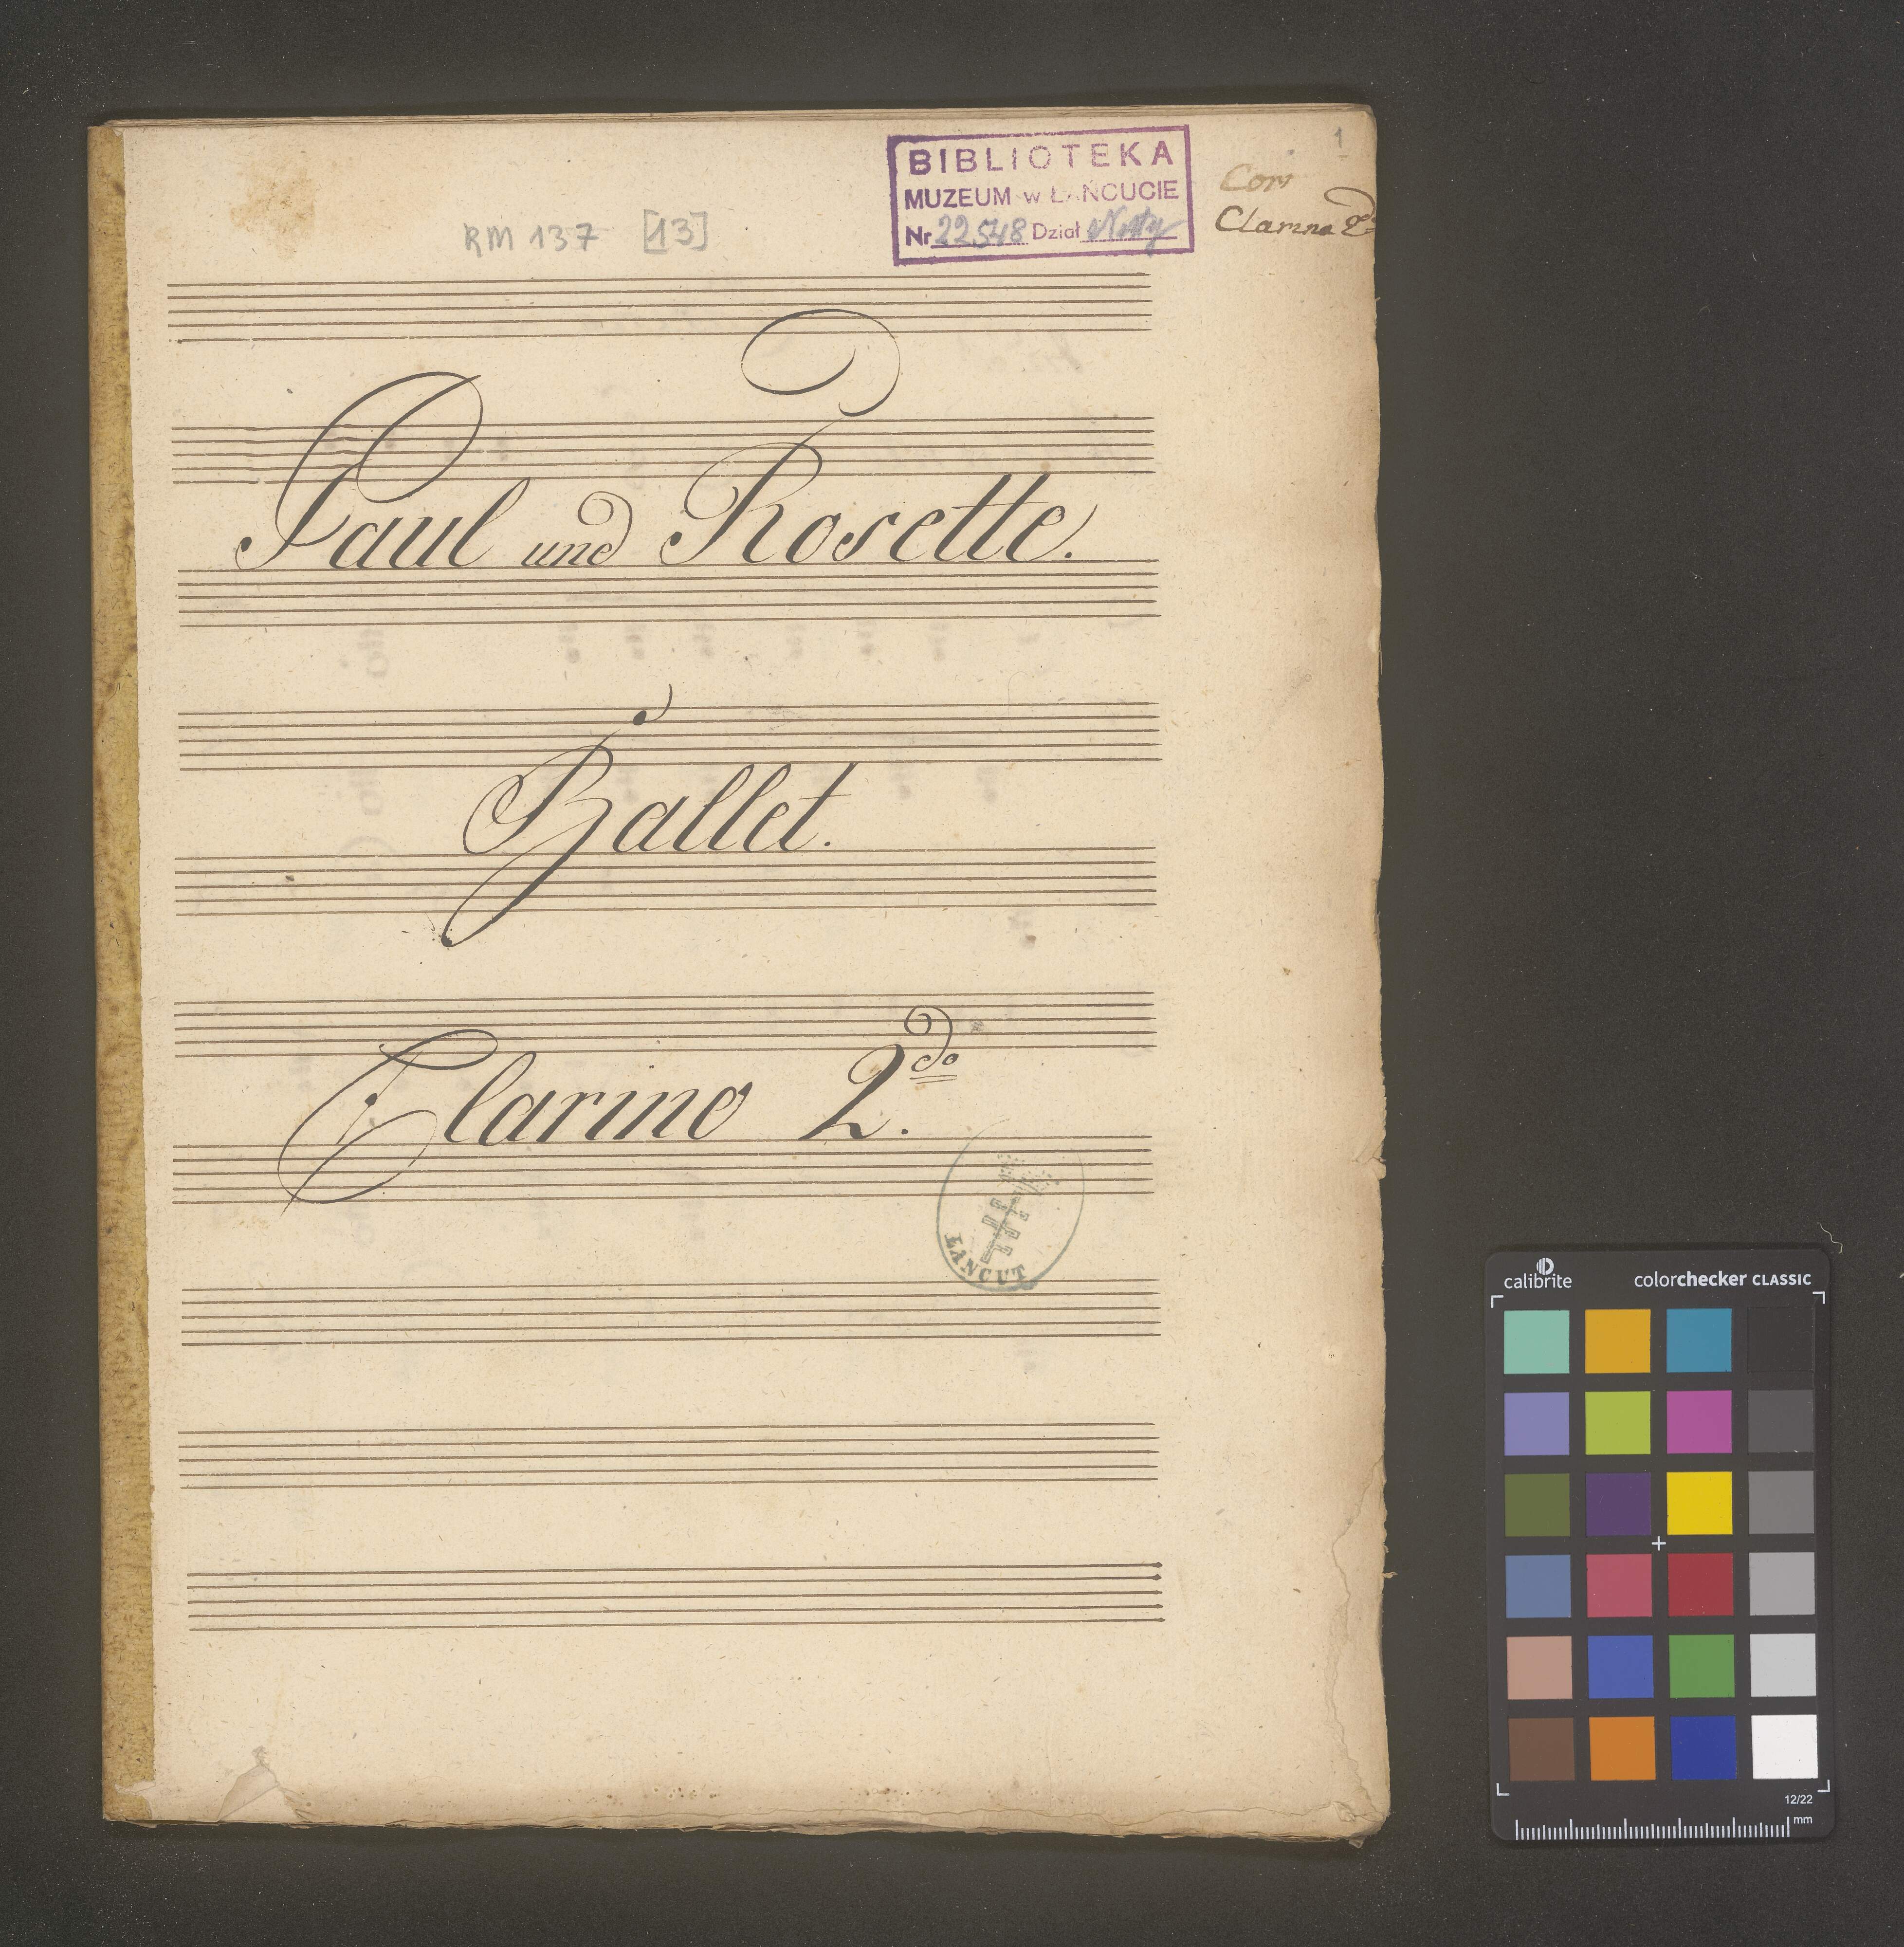 1
BIBLIOTEKA
MUZEUM w ŁAŃCUCIE
Nr 22548 Dział Nuty
Corn
Clarino 2do
RM 137 [13]
Paul und Rosette.
Ballet.
Clarino 2do.
ŁAŃCUT
calibrite colorchecker CLASSIC
12/22
mm